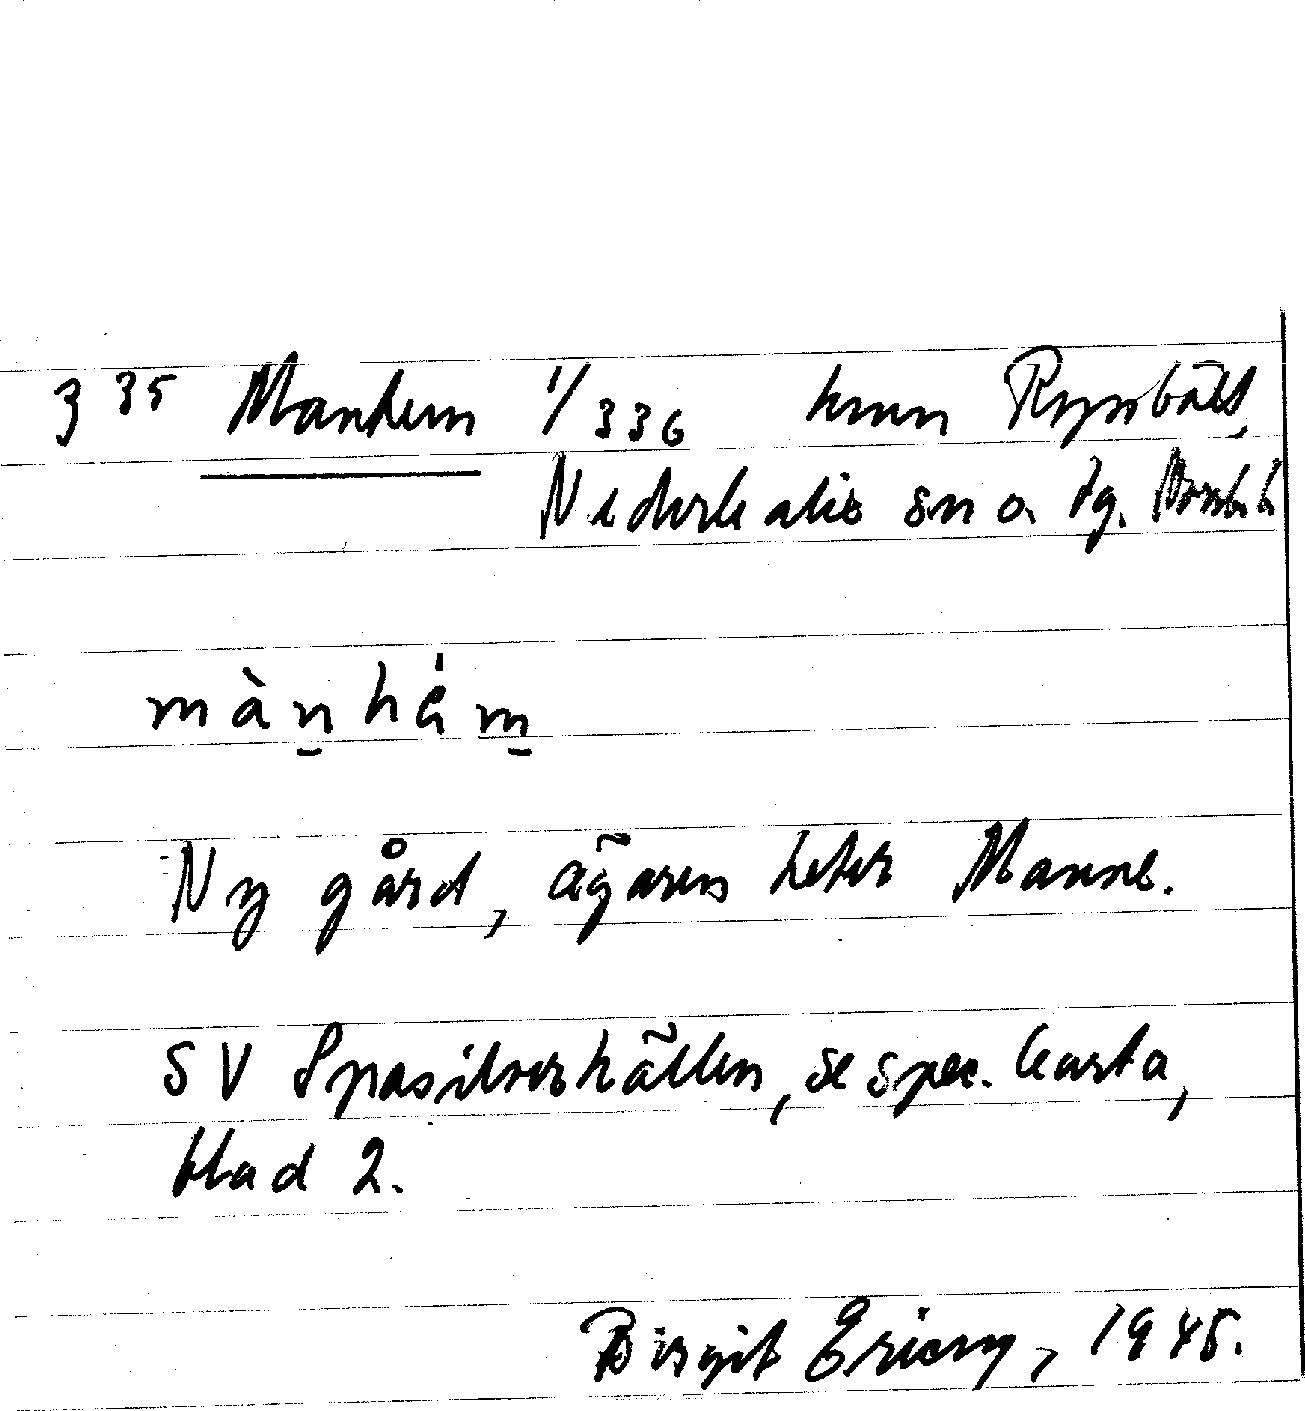 335 Manhem 1/336 hmn Rysbält,
Nederkalix sn o. tg. Norrb. l.
mànhém
Ny gård, ägaren heter Manne.
SV Spasilverkällen, se spec. karta,
blad 2.
Birgit Ericsy, 1945.